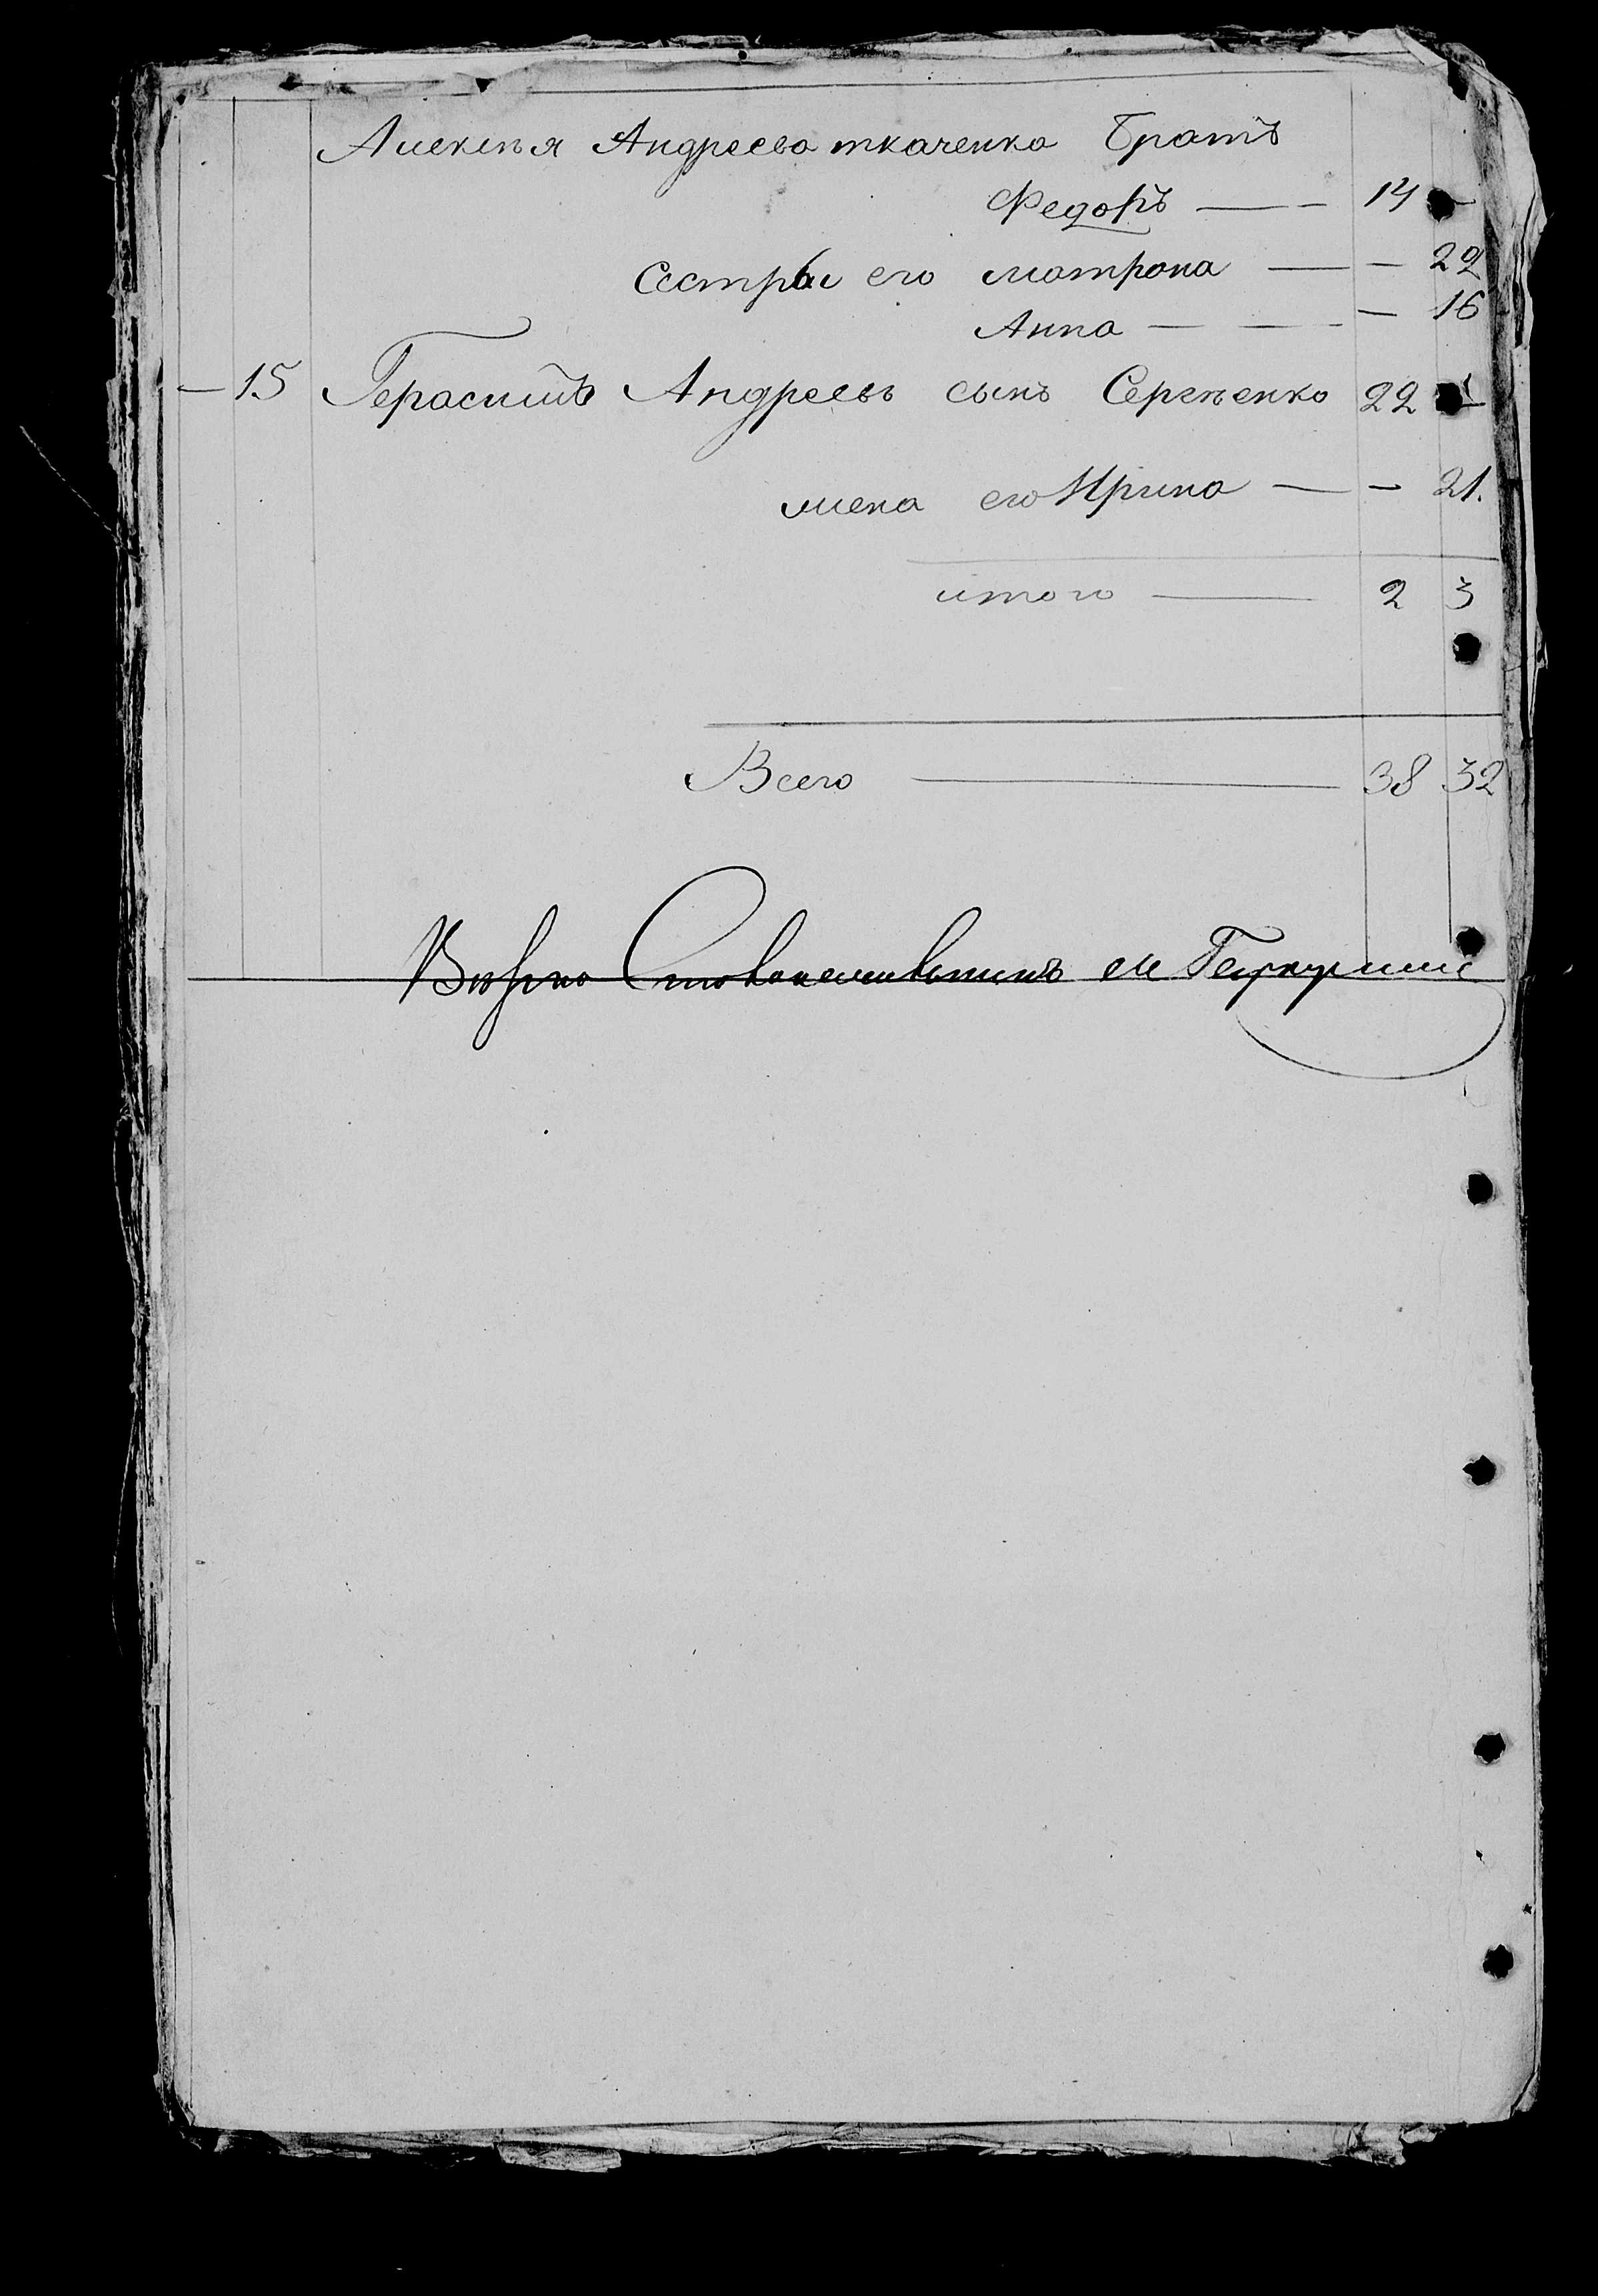 Алексѣя Андреева ткаченка Братъ
Федоръ — 14 —
Сестры его матрона — — 22
Анна — — — 16
— 15 Герасимъ Андреевъ сынъ Сергѣенко 22
жена его Ирина — — 21.
итого — 2 3
Всего — 38 32
Вѣрно